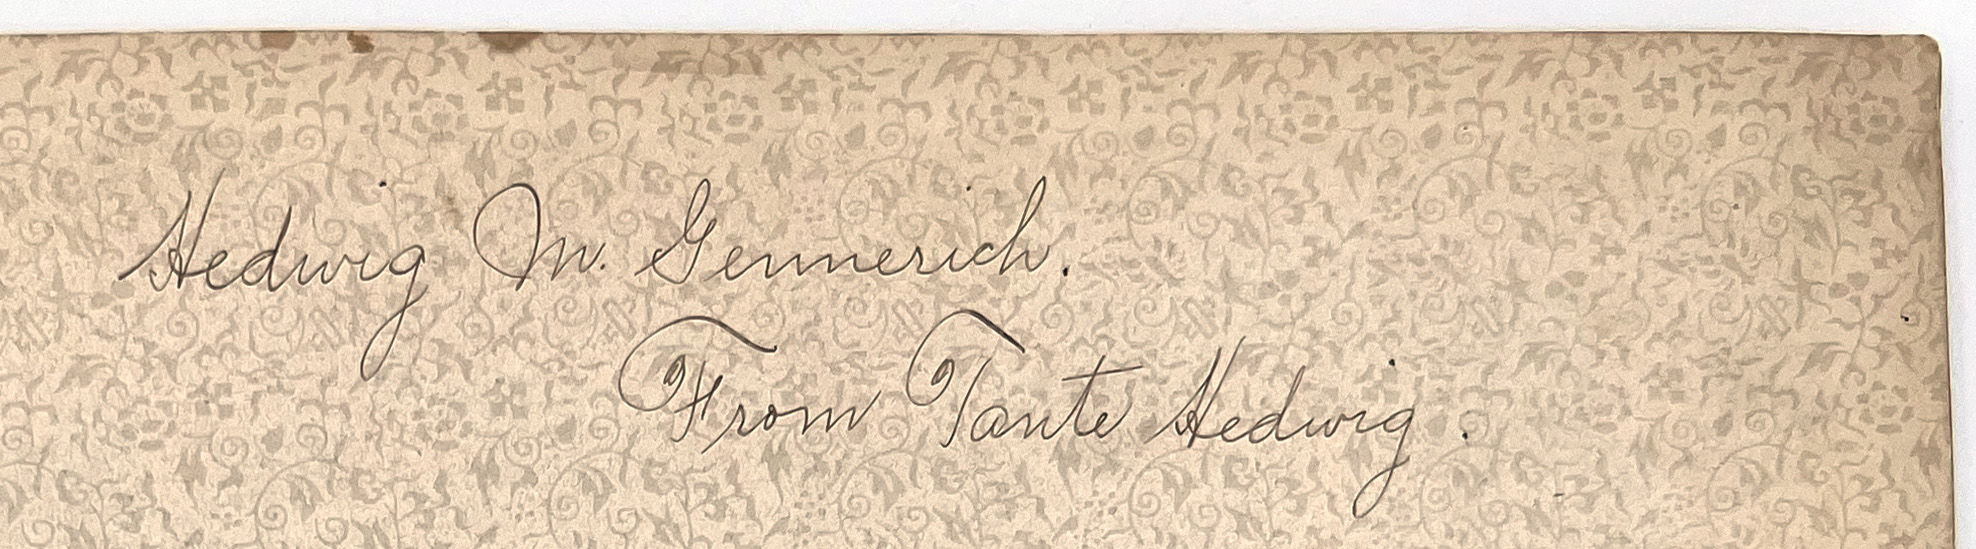 Hedwig M. Gennerich.
From Tante Hedwig.